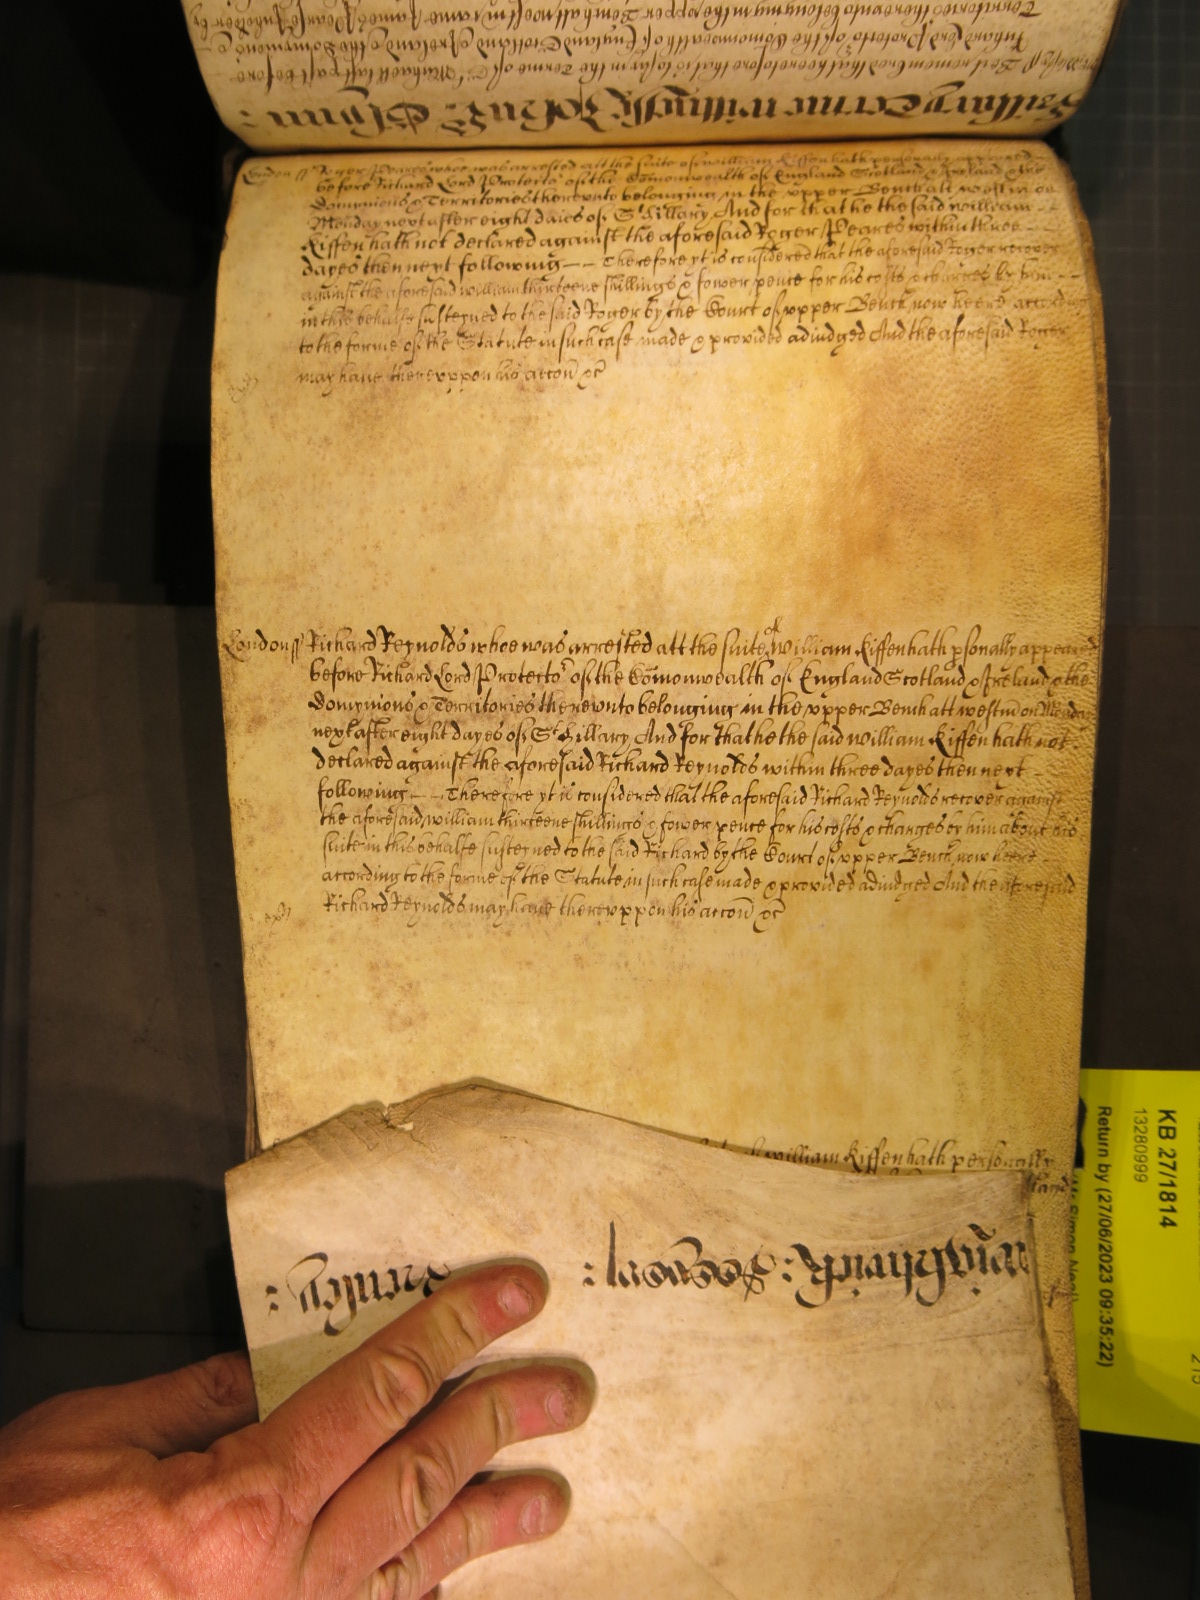 Hillary Terme
Best remembred that heretofore that is to say in the Terme of St Michaell last past before
Richard Lord Protector of the Comonwealth of England Scotland & Ireland & the Dominions &
Territories thereunto belonging in the upper Bench att westm came James Pearse
London ss Roger Peares whoe was arrested att the suite of william Kiffen hath personally appeared
before Richard Lord Protector of the Comonwealth of England Scotland & Ireland & the
Dominions & Territories thereunto belonging in the upper Bench att westm on
Monday next after eight daies of St Hillary And for that he the said william
Kiffen hath not declared against the aforesaid Roger Peares within three
dayes then next following — Therefore yt is considered that the aforesaid Roger recover
against the aforesaid william thirteene shillings & fower pence for his costs & charges by him
in this behalfe susteyned to the said Roger by the Court of upper Bench now heere according
to the forme of the Statute in such case made & provided adiudged And the aforesaid Roger
may have thereuppon his accon &c
London ss Richard Reynolds whoe was arrested att the suite of william Kiffen hath psonally appeared
before Richard Lord Protector of the Comonwealth of England Scotland & Ireland & the
Dominions & Territories thereunto belonging in the upper Bench att westm on Monday
next after eight dayes of St Hillary And for that he the said william Kiffen hath not
declared against the aforesaid Richard Reynolds within three dayes then next
following — Therefore yt is considered that the aforesaid Richard Reynolds recover against
the aforesaid william thirteene shillings & fower pence for his costs & charges by him about his
suite in this behalfe susteyned to the said Richard by the Court of upper Bench now heere
according to the forme of the Statute in such case made & provided adiudged And the aforesaid
Richard Reynolds may have thereuppon his accon &c
william Kiffen hath personally
KB 27/1814
13280999
Return by (27/06/2023 09:35:22)